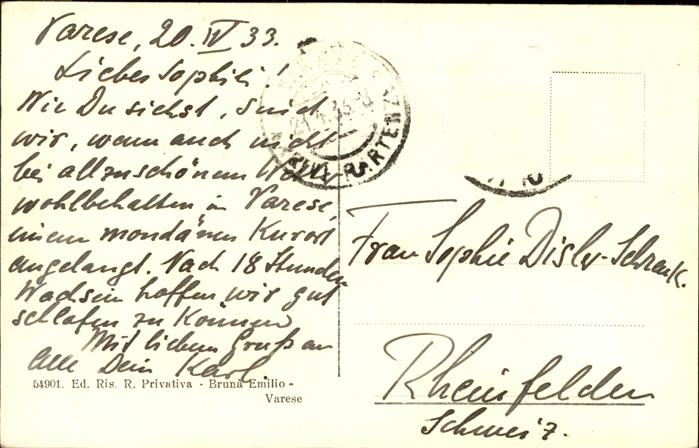 Varese, 20. IV 33.
Liebes Sophili!
Wie Du siehst, sind
wir, wenn auch nicht
bei allzuschönem Wetter
wohlbehalten in Varese,
einem mondänen Kurort
angelangt. Nach 18 Stunden
Wachsein hoffen wir gut
schlafen zu können
Mit liebem Gruß an
Alle Dein Karl.
54901. Ed. Ris. R. Privativa - Bruna Emilio -
Varese
PARTENZA
Frau Sophie Disler-Schrank.
Rheinfelden
Schweiz.